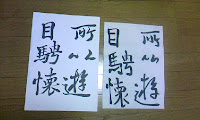 所以遊
目騁懷
所以遊
目騁懷